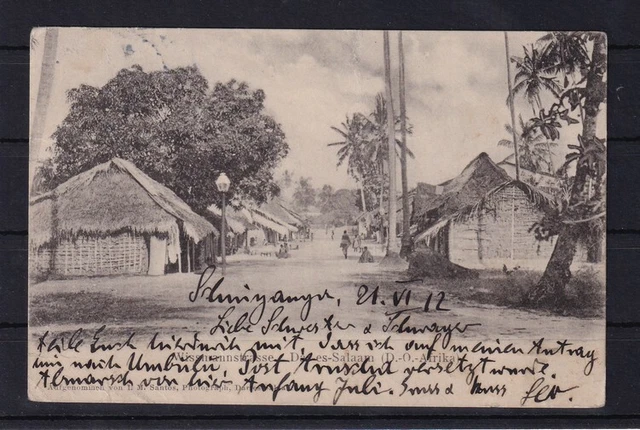 Schinyanga, 21. VI 12
Liebe Schwester & Schwager
Teile Euch hierdurch mit, dass ich auf meinen Antrag
Wissmannstrasse - Dar-es-Salaam (D.-O.-Afrika)
hin nach Umbulu, Post Aruscha versetzt wurde.
Abmarsch von hier Anfang Juli. Gruss & Kuss
Aufgenommen von I. M. Santos, Photograph, Dar